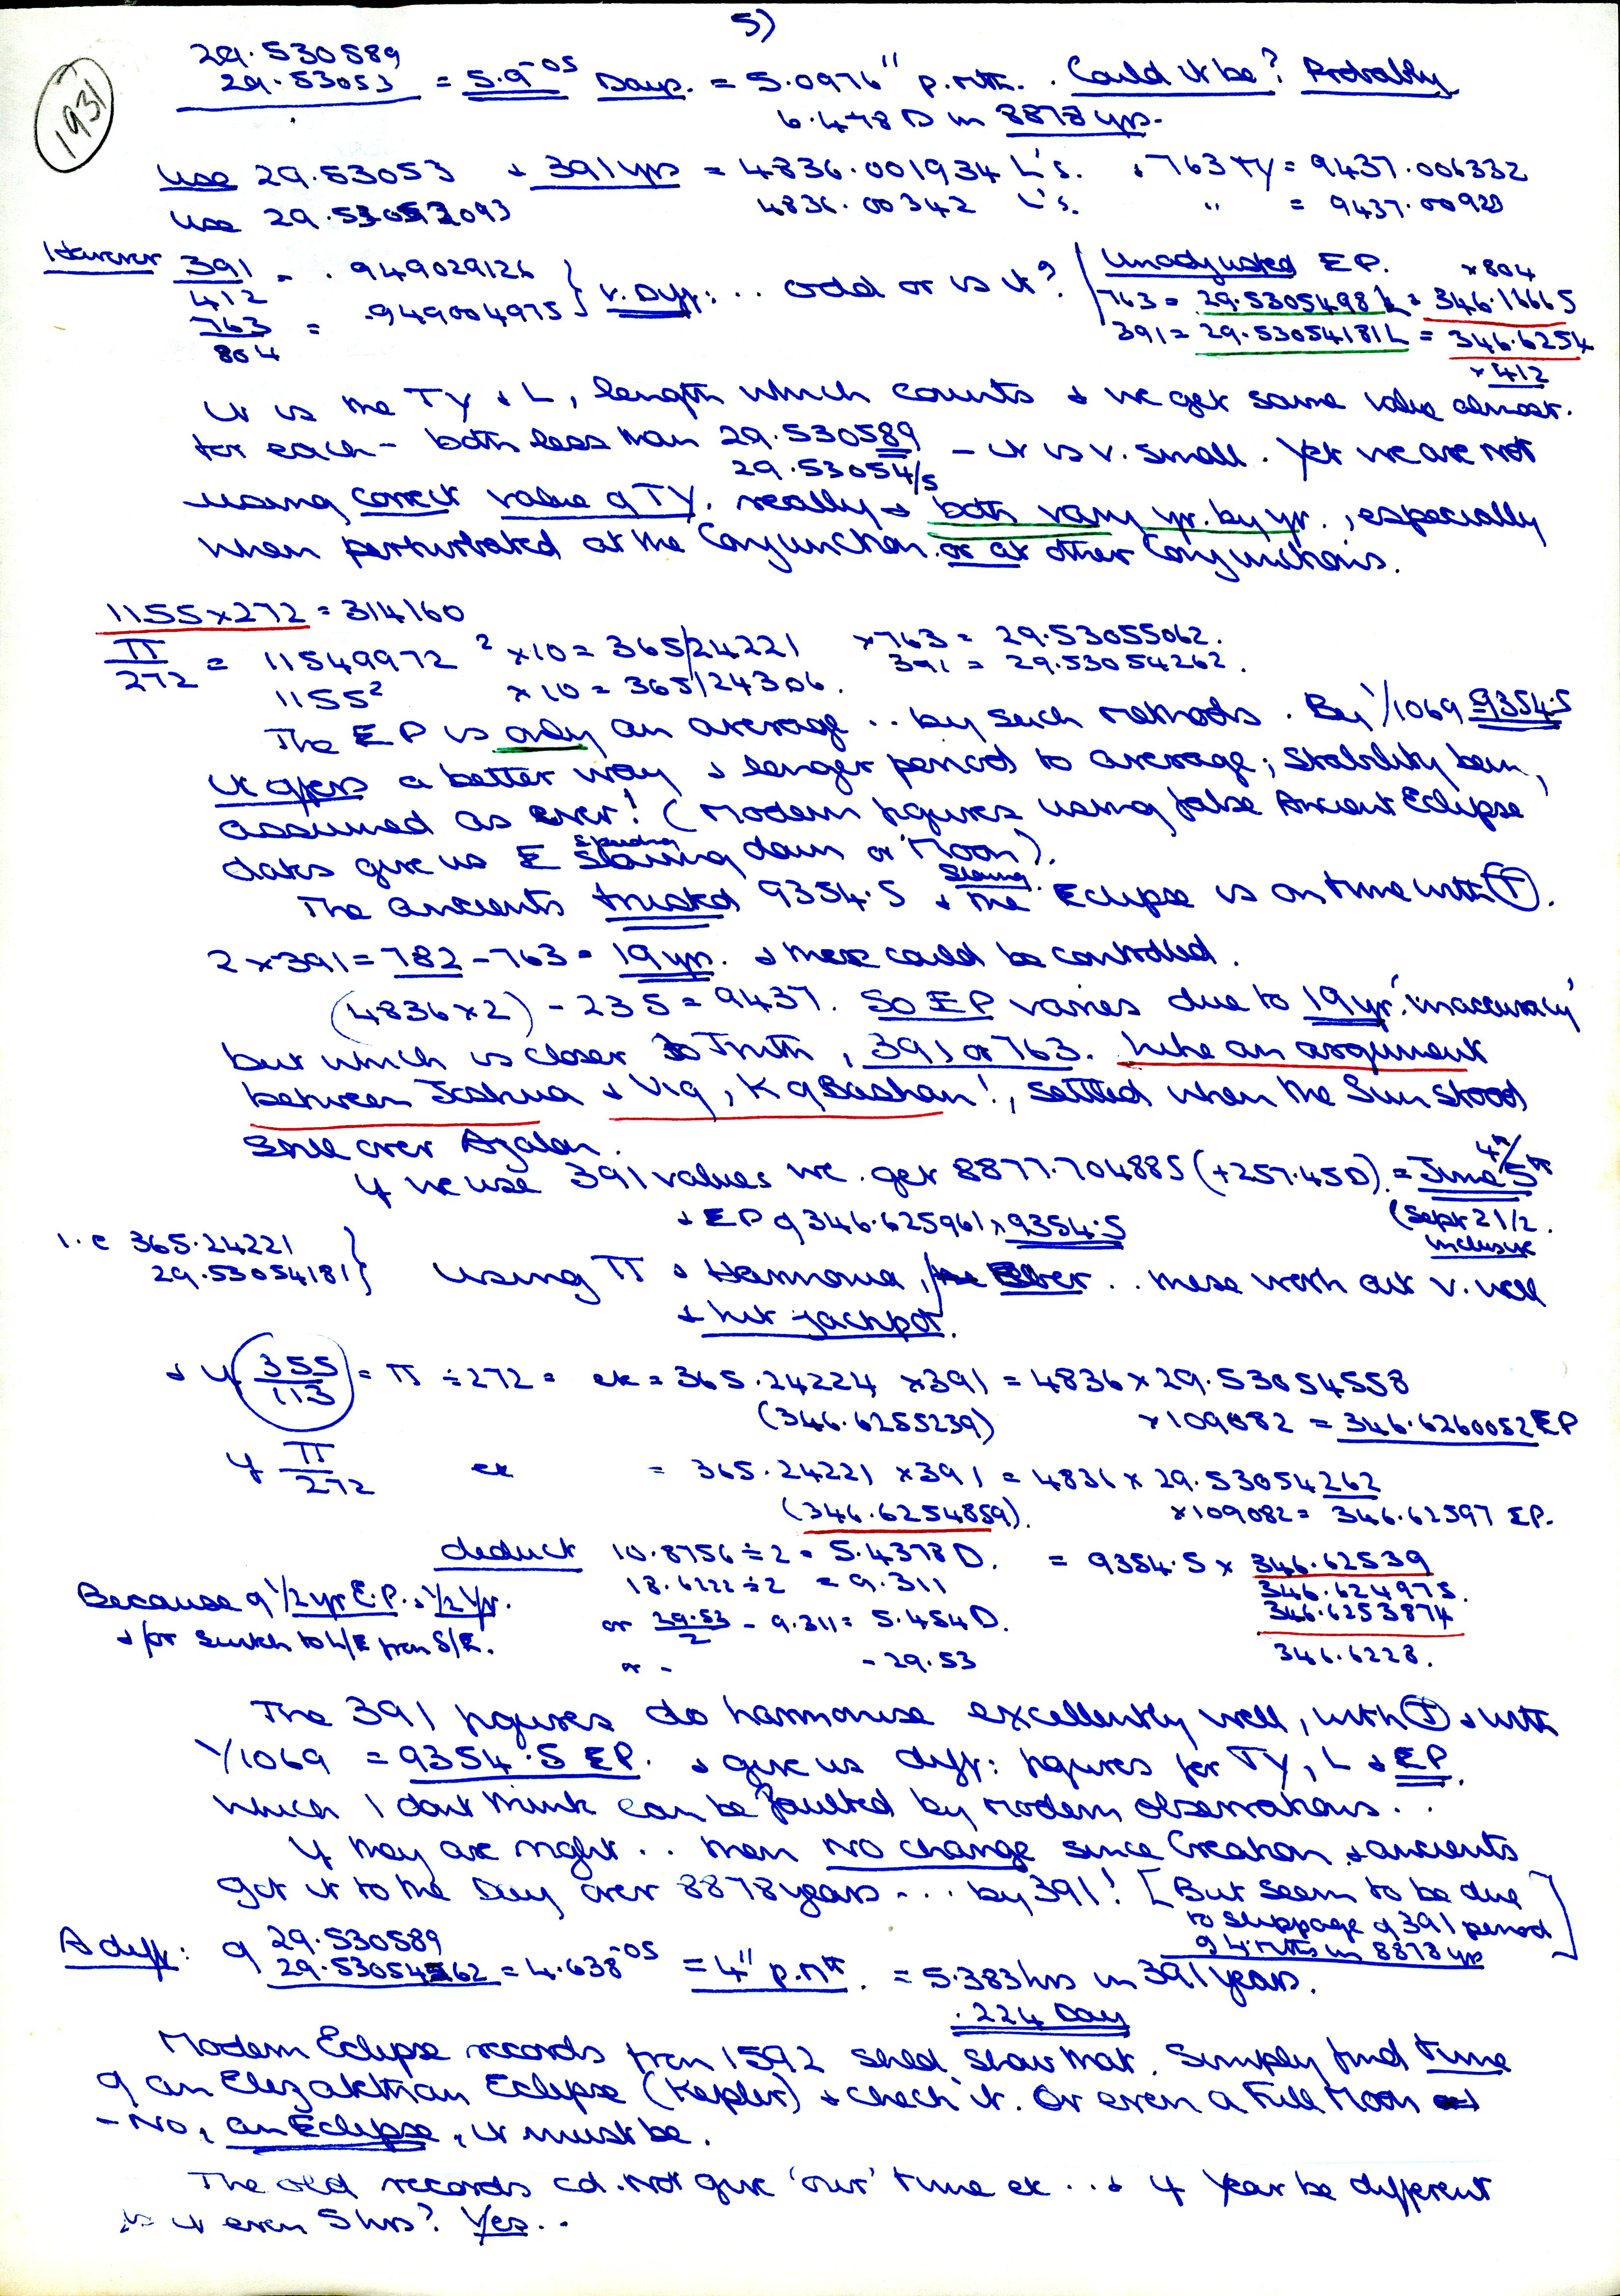 5)
1931
29.530589
29.53053 = 5.9⁻⁰⁵ Days. = 5.0976" p.mth. . Could it be? Probably
6.478 D in 8878 yrs.
Use 29.53053 + 391 yrs = 4836.001934 L's. + 763 TY = 9437.006332
Use 29.53052093 4836.00342 L's. " = 9437.00920
However 391 = .949029126
412
763 = .949004975 } v. Diff: .. odd or is it?
804
Unadjusted EP. ×804
763 = 29.53054981 L = 346.16665
391 = 29.53054181 L = 346.6254
×412
It is the TY + L, length which counts + we get same value almost.
for each - both less than 29.530589 - it is v. small. Yet we are not
29.53054/5
using correct value of TY. really + both vary yr. by yr., especially
when perturbated at the Conjunction or at other Conjunctions.
1155×272 = 314160
π/272 = 11549972 ² ×10 = 365/24221 ×763 = 29.53055062.
1155² ×10 = 365/24306. 391 = 29.53054262.
The EP is only an average .. by such methods. By Y/1069 9354.5
it offers a better way + longer period to average; stability being
assumed as ever! (Modern figures using false Ancient Eclipse
dates give us E slowing down or Moon).
speeding
slowing
The ancients trusted 9354.5 + the Eclipse is on time with Ⓣ.
2×391 = 782 - 763 = 19 yrs. + these could be controlled.
(4836×2) - 235 = 9437. So EP varies due to 19 yr. 'inaccuracy'
but which is closer to Truth, 391 or 763. Like an argument
between Joshua + Og, K of Bashan!, settled when the Sun stood
still over Ajalon.
If we use 391 values we get 8877.704885 (+257.45D) = June 4ᵗʰ/5ᵗʰ
+ EP of 346.625961 × 9354.5 (Sept 21/2.
inclusive
i.e 365.24221
29.53054181 } Using π + Harmonia, .. these work out v. well
+ hit jackpot.
+ if 355/113 = π ÷ 272 = etc = 365.24224 × 391 = 4836 × 29.53054558
(346.6255239) ×109082 = 346.6260052 EP
if π/272 etc = 365.24221 × 391 = 4836 × 29.53054262
(346.6254859). ×109082 = 346.62597 EP.
deduct 10.8756 ÷ 2 = 5.4378 D. = 9354.5 × 346.62539
Because of 1/2 yr E.P. + 1/2 Yr. 18.6222 ÷ 2 = 9.311 346.624975.
+/or switch to L/E from S/E. or 29.53/2 - 9.311 = 5.454 D. 346.6253874
or - - 29.53 346.6228.
The 391 figures do harmonise excellently well, with Ⓣ + with
Y/1069 = 9354.5 EP. + give us diff: figures for TY, L + EP.
which I dont think can be faulted by modern observations ..
If they are right .. then no change since Creation + ancients
got it to the Day over 8878 years ... by 391! [But seem to be due
to slippage of 391 period
of 4 mths in 8878 yrs]
A diff: of 29.530589
29.53054262 = 4.638⁻⁰⁵ = 4" p.mth. = 5.383 hrs in 391 years.
.224 Day
Modern Eclipse records from 1592 shld. show that. Simply find time
of an Elezabethan Eclipse (Kepler) + check it. Or even a Full Moon
- No, an Eclipse, it must be.
The old records cd. not give 'our' time etc .. + if Year be different
is it even 5 hrs? Yes..